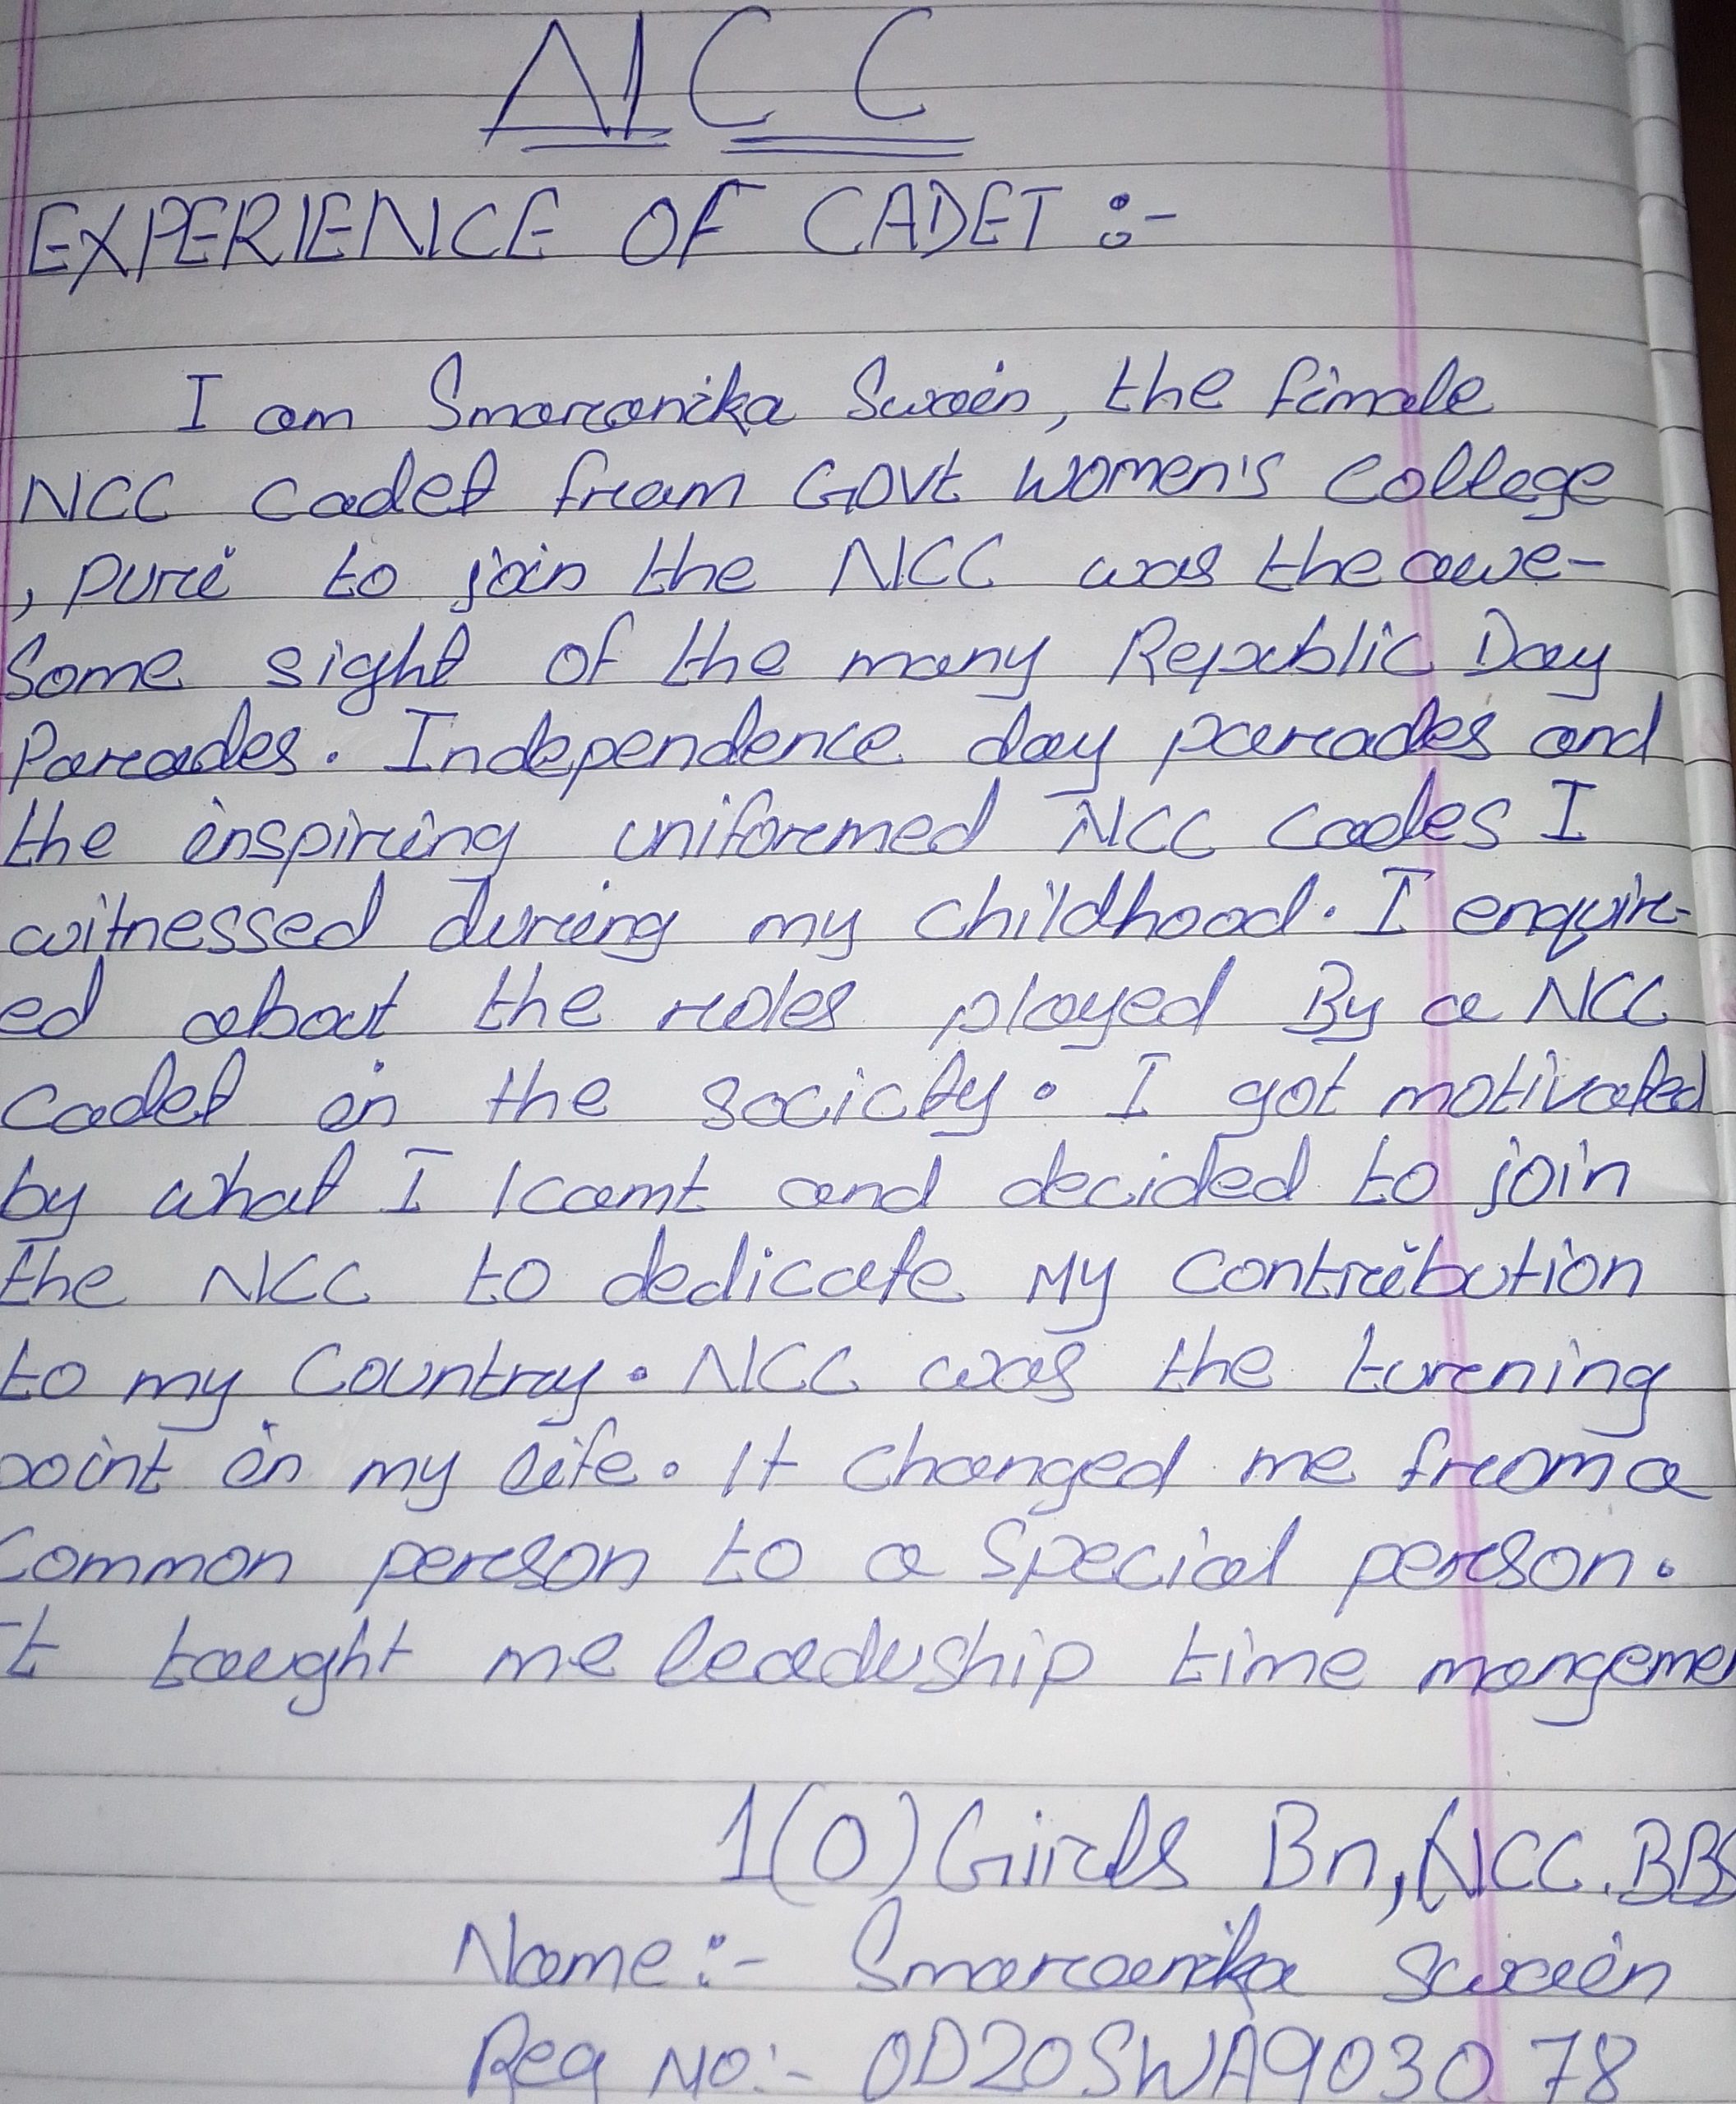 NCC
EXPERIENCE OF CADET :-
I am Smaranika Swain, the fimale
NCC Cadet fram Govt Women's College
, puri to join the NCC was the awe-
Some sight of the many Republic Day
Parades. Independence day parades and
the inspiring uniformed NCC Cades I
witnessed during my childhood. I enquir-
ed about the roles played By a NCC
Cadet in the socicty. I got motivated
by what I lcamt and decided to join
the NCC to dedicate My contribution
to my Country. NCC was the turning
point in my life. It changed me from a
Common person to a special person.
It taught me leadership time mangemen
1(O) Girls Bn, NCC. BBS
Name :- Smaranika Swain
Reg No:- OD20SWA903078